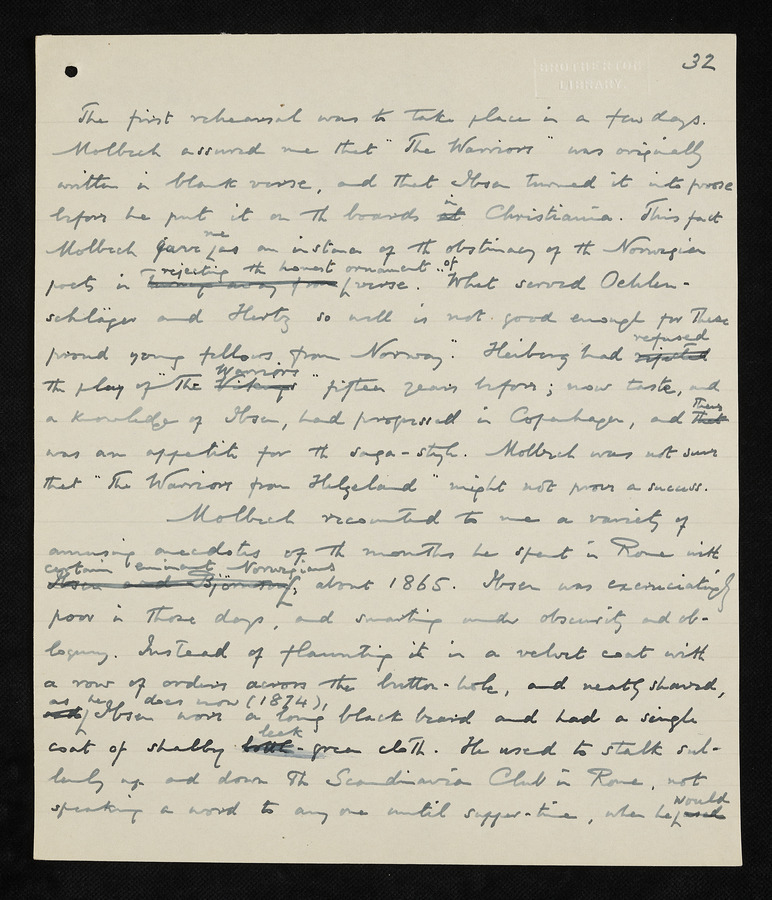 32
BROTHERTON
LIBRARY.
The first rehearsal was to take place in a few days.
Molbech assured me that "The Warriors" was originally
written in blank verse, and that Ibsen turned it into prose
before he put it on the boards at in Christiania. This fact
Molbech gave me as an instance of the obstinacy of the Norwegian
poets in "rejecting the honest ornament of verse. "What served Oehlen-
schläger and Hertz so well is not good enough for these
proud young fellows from Norway". Heiberg had rejected refused
the play of "The Vikings Warriors" fifteen years before; now taste, and
a knowledge of Ibsen, had progressed in Copenhagen, and that there
was an appetite for the saga-style. Molbech was not sure
that "The Warriors from Helgeland" might not prove a success.
Molbech recounted to me a variety of
amusing anecdotes of the months he spent in Rome with
Ibsen and Björnson, certain eminent Norwegians about 1865. Ibsen was excruciatingly
poor in those days, and smarting under obscurity and ob-
loquy. Instead of flaunting it in a velvet coat with
a row of orders across the button-hole, and neatly shaved,
as he does now (1874), Ibsen wore a long black beard and had a single
coat of shabby bottle- leek green cloth. He used to stalk sul-
lenly up and down the Scandinavian Club in Rome, not
speaking a word to any one until supper-time, when he used would